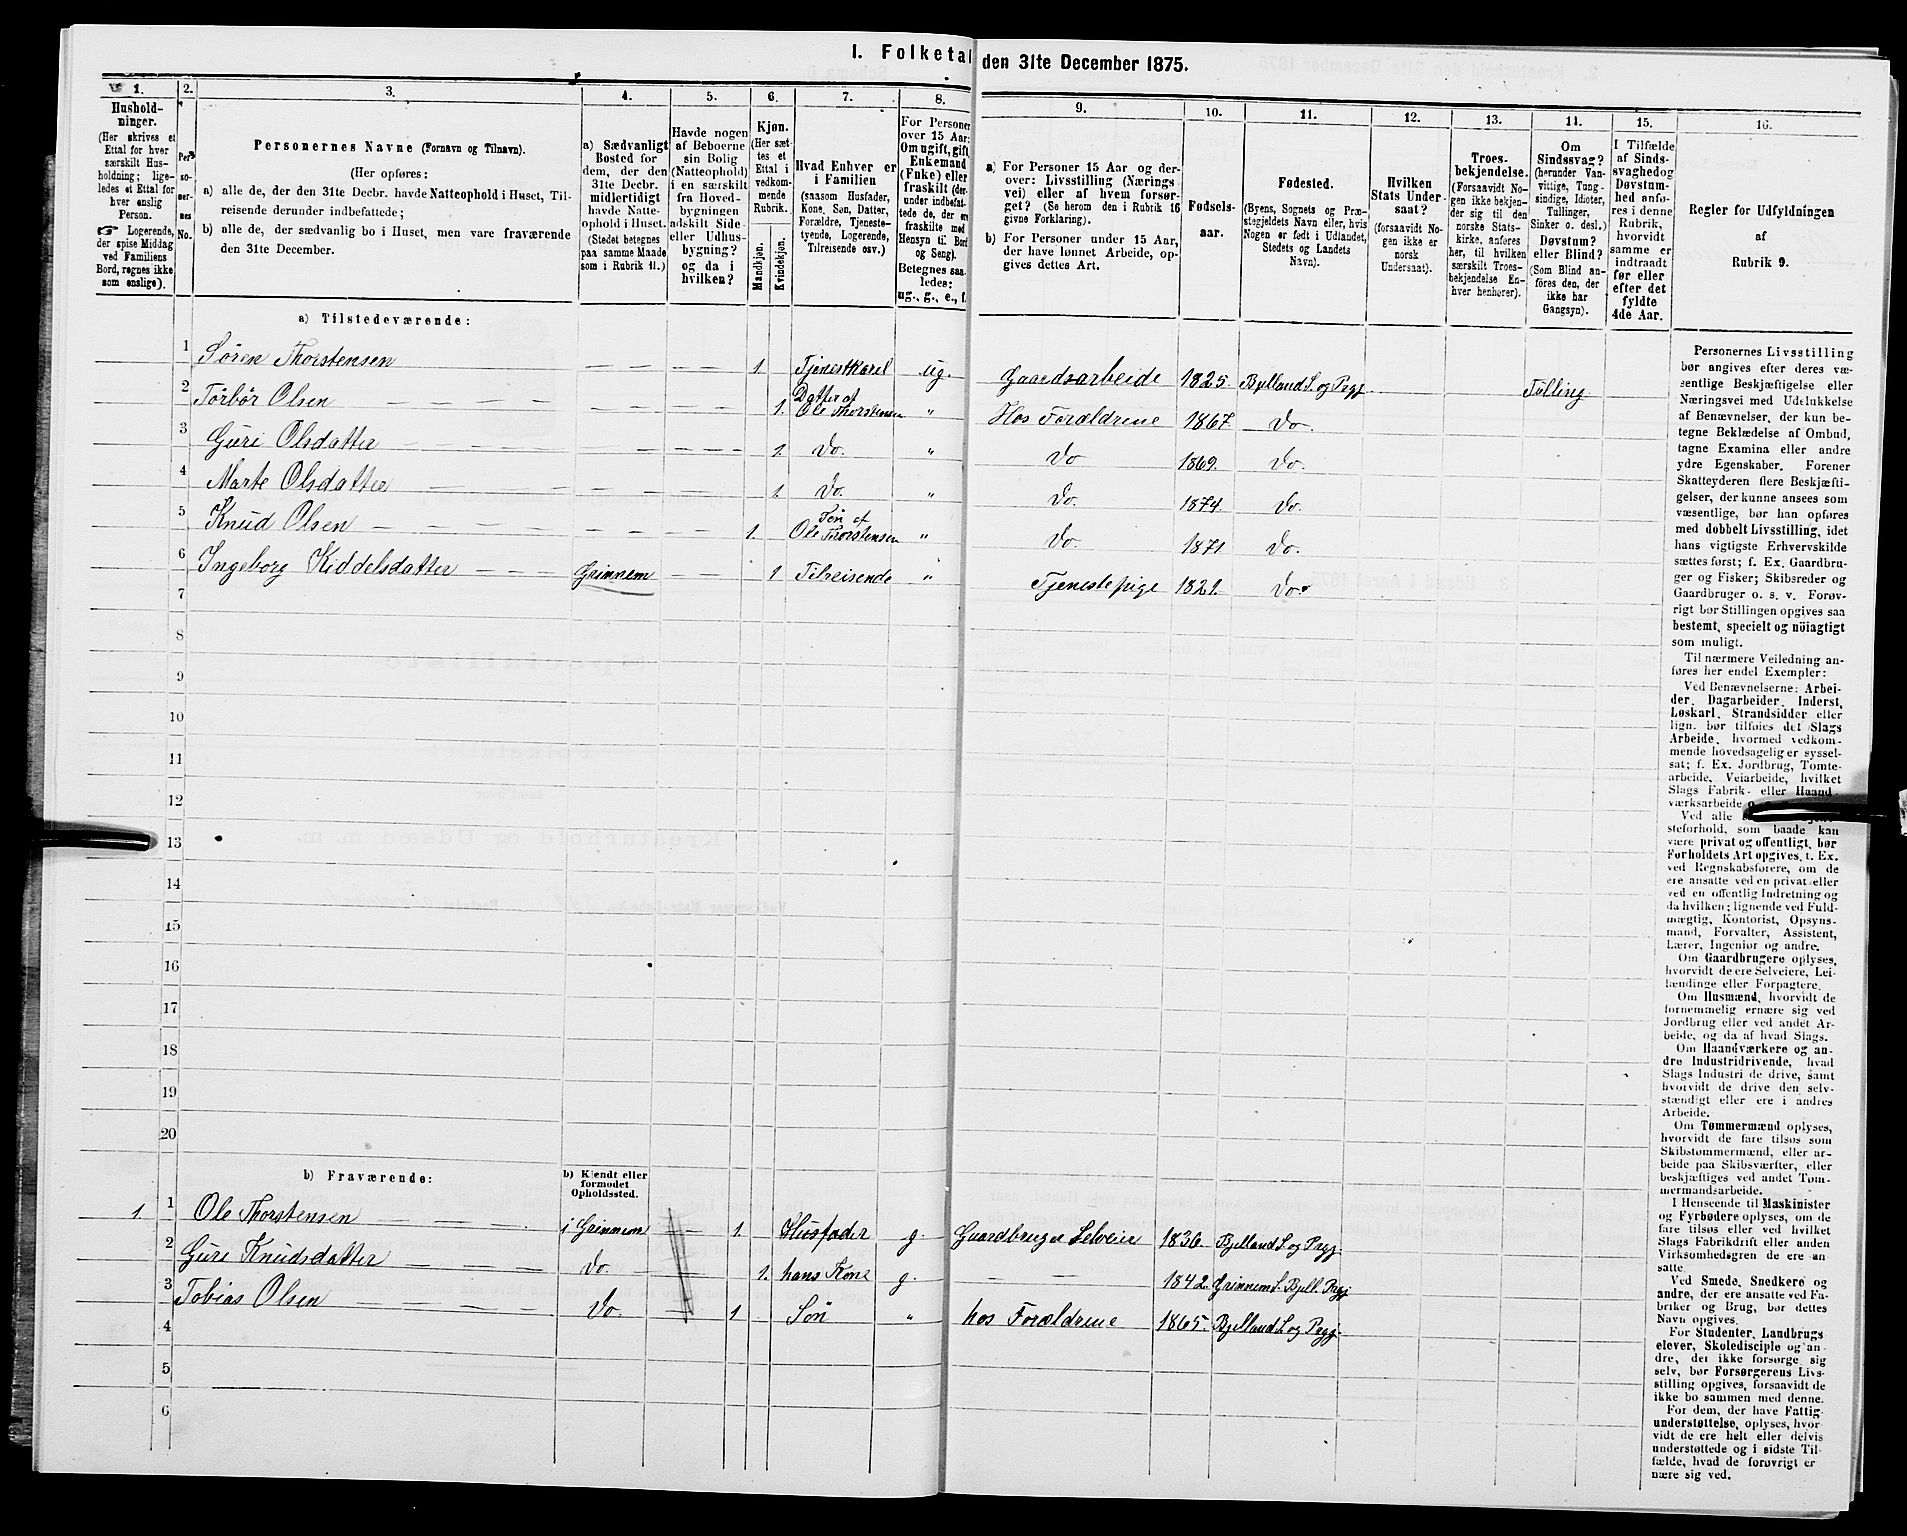 I. Folketal den 31te December 1875.
1. 2. 3. 4. 5. 6. 7. 8. 9. 10. 11. 12. 13. 14. 15. 16.
Hushold-
ninger.
(Her skrives et
Ettal for hver
særskilt Hus-
holdning; lige-
ledes et Ettal for
hver enslig
Person.
☞ Logerende,
der spise Middag
ved Familiens
Bord, regnes ikke
som enslige).
Per-
so-
ner-
nes
No.
Personernes Navne (Fornavn og Tilnavn).
(Her opføres:
a) alle de, der den 31te Decbr. havde Natteophold i Huset, Til-
reisende derunder indbefattede;
b) alle de, der sædvanlig bo i Huset, men vare fraværende
den 31te December.
a) Sædvanligt
Bosted for
dem, der den
31te Decbr.
midlertidigt
havde Natte-
ophold i Huset.
(Stedet betegnes
paa samme Maade
som i Rubrik 11.)
Havde nogen
af Beboerne
sin Bolig
(Natteophold)
i en særskilt
fra Hoved-
bygningen
adskilt Side-
eller Udhus-
bygning?
og da i
hvilken?
Kjøn.
(Her sæt-
tes et
Ettal i
vedkom-
mende
Rubrik.
Mandkjøn.
Kvindekjøn.
Hvad Enhver er
i Familien
(saasom Husfader,
Kone, Søn, Datter,
Forældre, Tjeneste-
tyende, Logerende,
Tilreisende osv.)
For Personer
over 15 Aar:
Om ugift, gift,
Enkemand
(Enke) eller
fraskilt (der-
under indbefat-
tede de, der ere
fraskilte med
Hensyn til Bord
og Seng).
Betegnes saa-
ledes:
ug., g., e., f.
a) For Personer 15 Aar og der-
over: Livsstilling (Nærings-
vei) eller af hvem forsør-
get? (Se herom den i Rubrik 16
givne Forklaring).
b) For Personer under 15 Aar,
der have lønnet Arbeide, op-
gives dettes Art.
Fødsels-
aar.
Fødested.
(Byens, Sognets og Præ-
stegjeldets Navn eller, hvis
Nogen er født i Udlandet,
Stedets og Landets
Navn).
Hvilken
Stats Under-
saat?
(forsaavidt No-
gen ikke er
norsk
Undersaat).
Troes-
bekjendelse.
(Forsaavidt No-
gen ikke bekjen-
der sig til den
norske Stats-
kirke, anføres
her, til hvilken
særskilt Troes-
bekjendelse En-
hver henhører).
Om
Sindssvag?
(herunder Van-
vittige, Tung-
sindige, Idioter,
Tullinger,
Sinker o. desl.)
Døvstum?
eller Blind?
(Som Blind an-
føres den, der
ikke har
Gangsyn).
I Tilfælde
af Sinds-
svaghed og
Døvstum-
hed anfø-
res i denne
Rubrik,
hvorvidt
samme er
indtraadt
før eller
efter det
fyldte
4de Aar.
Regler for Udfyldningen
af
Rubrik 9.
a) Tilstedeværende:
1 Sören Thorstensen — — — 1. Tjenestkarel ug. Gaardsarbeide 1825. Bjelland S. og Pregj Tulling
2 Torbör Olsen — — — 1. Datter af Ole Thorstensen " Hos Forældrene 1867. Do.
3 Guri Olsdatter — — — 1. Do. " Do 1869. Do.
4 Marte Olsdatter — — — 1. Do. " Do. 1874. Do.
5 Knud Olsen — — — 1. Sön af Ole Thorstensen " Do. 1871. Do.
6 Ingeborg Kiddelsdatter Grinnem — — 1 Tilreisende " Tjenestepige 1821. Do.
7
8
9
10
11
12
13
14
15
16
17
18
19
20
b) Fraværende:
b) Kjendt eller
formodet
Opholdssted.
1. 1 Ole Thorstensen — — — i Grinnem — 1. Husfader g. Gaardbruger Selveier 1836. Bjelland S. og Pregj.
2 Guri Knudsdatter — — — Do. — 1. hans Kone g. — — 1842. Grinnem S. Bjell. Pregj
3 Tobias Olsen — — — Do — 1 Sön " hos Forældrene 1865. Bjelland S. og Pregj.
4
5
6
Personernes Livsstilling
bør angives efter deres væ-
sentlige Beskjæftigelse eller
Næringsvei med Udelukkelse
af Benævnelser, der kun be-
tegne Beklædelse af Ombud,
tagne Examina eller andre
ydre Egenskaber. Forener
Skatteyderen flere Beskjæfti-
gelser, der kunne ansees som
væsentlige, bør han opføres
med dobbelt Livsstilling, idet
hans vigtigste Erhvervskilde
sættes først; f. Ex. Gaardbru-
ger og Fisker; Skibsreder og
Gaardbruger o. s. v. Forøv-
rigt bør Stillingen opgives saa
bestemt, specielt og nöiagtigt
som muligt.
Til nærmere Veiledning an-
føres her endel Exempler:
Ved Benævnelserne: Arbei-
der, Dagarbeider, Inderst,
Løskarl, Strandsidder eller
lign. bør tilføies det Slags
Arbeide, hvormed vedkom-
mende hovedsagelig er syssel-
sat; f. Ex. Jordbrug, Tomte-
arbeide, Veiarbeide, hvilket
Slags Fabrik- eller Haand-
værksarbeide o.
Ved alle
steforhold, som baade kan
være privat og offentligt, bør
Forholdets Art opgives, t. Ex.
ved Regnskabsførere, om de
ere ansatte ved en privat eller
ved en offentlig Indretning og
da hvilken; lignende ved Fuld-
mægtig, Kontorist, Opsyns-
mand, Forvalter, Assistent,
Lærer, Ingeniør og andre.
Om Gaardbrugere oplyses,
hvorvidt de ere Selveiere, Lei-
lændinge eller Forpagtere.
Om Husmænd, hvorvidt de
fornemmelig ernære sig ved
Jordbrug eller ved andet Ar-
beide, og da af hvad Slags.
Om Haandværkere og an-
dre Industridrivende, hvad
Slags Industri de drive, samt
hvorvidt de drive den selv-
stændigt eller ere i andres
Arbeide.
Om Tømmermænd oplyses,
hvorvidt de fare tilsøs som
Skibstømmermænd, eller ar-
beide paa Skibsværfter, eller
beskjæftiges ved andet Tøm-
mermandsarbeide.
I Henseende til Maskinister
og Fyrbødere oplyses, om de
fare tilsøs eller ved hvilket
Slags Fabrikdrift eller anden
Virksomhedsgren de ere an-
satte.
Ved Smede, Snedkere og
andre, der ere ansatte ved Fa-
briker og Brug, bør dettes
Navn opgives.
For Studenter, Landbrugs-
elever, Skoledisciple og an-
dre, der ikke forsørge sig
selv, bør Forsørgerens Livs-
stilling opgives, forsaavidt de
ikke bo sammen med denne.
For dem, der have Fattig-
understøttelse, oplyses, hvor-
vidt de ere helt eller delvis
understøttede og i sidste Til-
fælde, hvad de forøvrigt er-
nære sig ved.